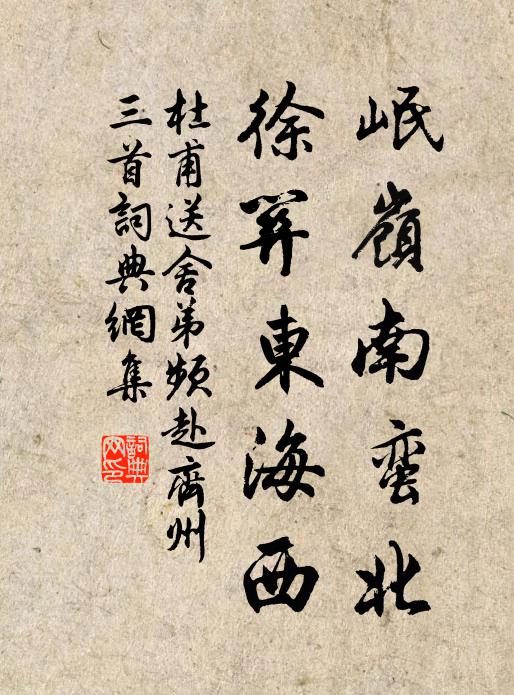 岷嶺南蛮北
徐關東海西
杜甫送舍弟頻赴齊州
三首詞典網集
詞典
网印